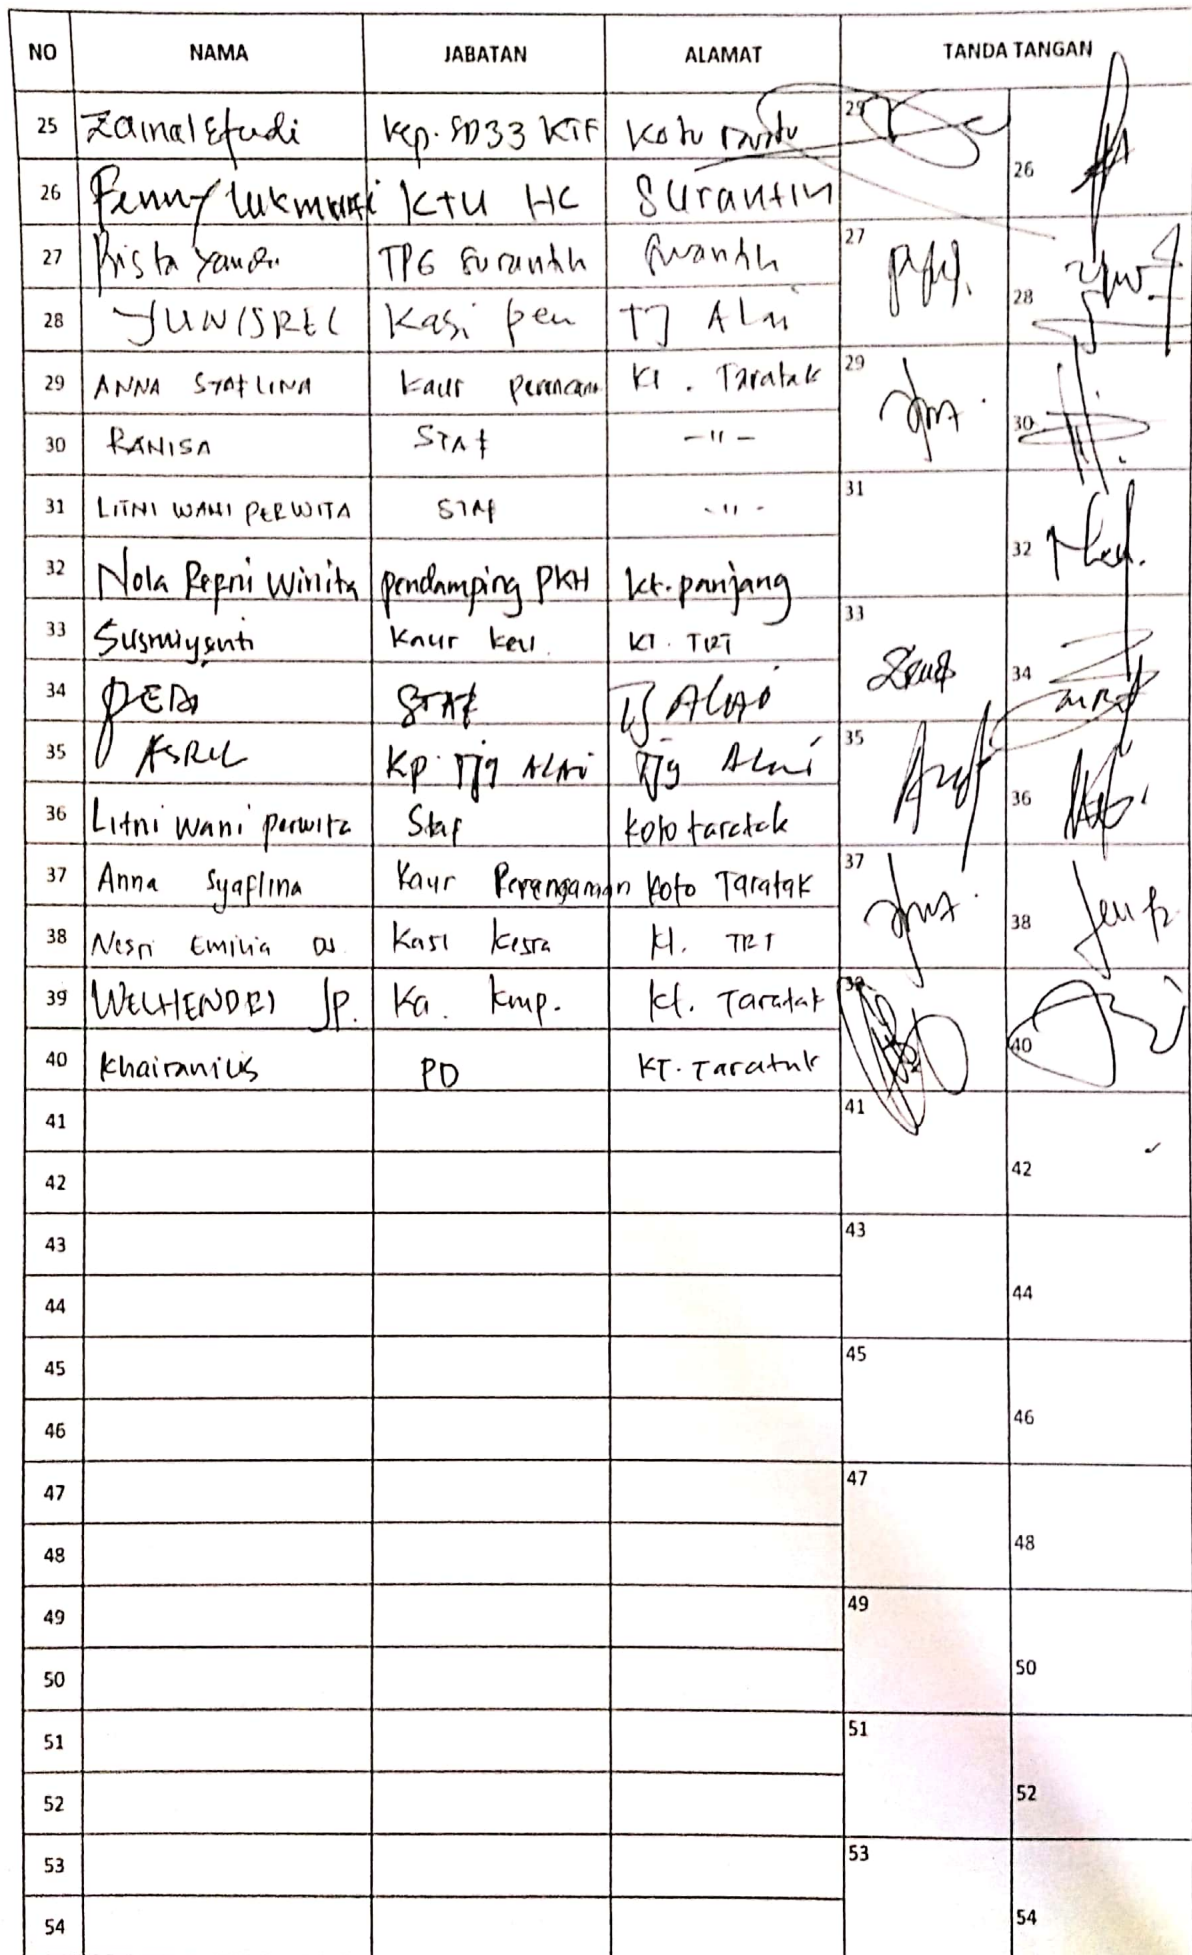 NO NAMA JABATAN ALAMAT TANDA TANGAN
25 Zainal Efendi Kep. SD33 KTF Koto 25
26 Fenny KTU HC Surantih 26
27 Rista Yandri TPG Surantih Surantih 27
28 YUNISREL Kasi pen TJ Alai 28
29 ANNA STAFLINA Kaur Perencan Kt. Taratak 29
30 RANISA STAf -"- 30
31 LITNI WANI PERWITA STAf -"- 31
32 Nola Repni Winita pendamping PKH kt. panjang 32
33 Susmiyanti Kaur keu. KT. TRT 33
34 STAf TJ ALAi 34
35 ASRIL Kp. Tjg ALAi Tjg ALAi 35
36 Litni wani perwita Staf koto taratak 36
37 Anna Syaflina Kaur Perencanaan Koto Taratak 37
38 Nesri Emilia Kasi kesra kt. TRT 38
39 WELHENDRI Jp. Ka. kmp. kt. Taratak 39
40 Khairanius PD KT. Taratak 40
41 41
42 42
43 43
44 44
45 45
46 46
47 47
48 48
49 49
50 50
51 51
52 52
53 53
54 54